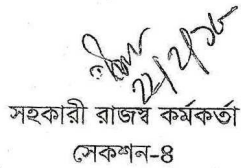 সহকারী রাজস্ব কর্মকর্তা
সেকশন-৪